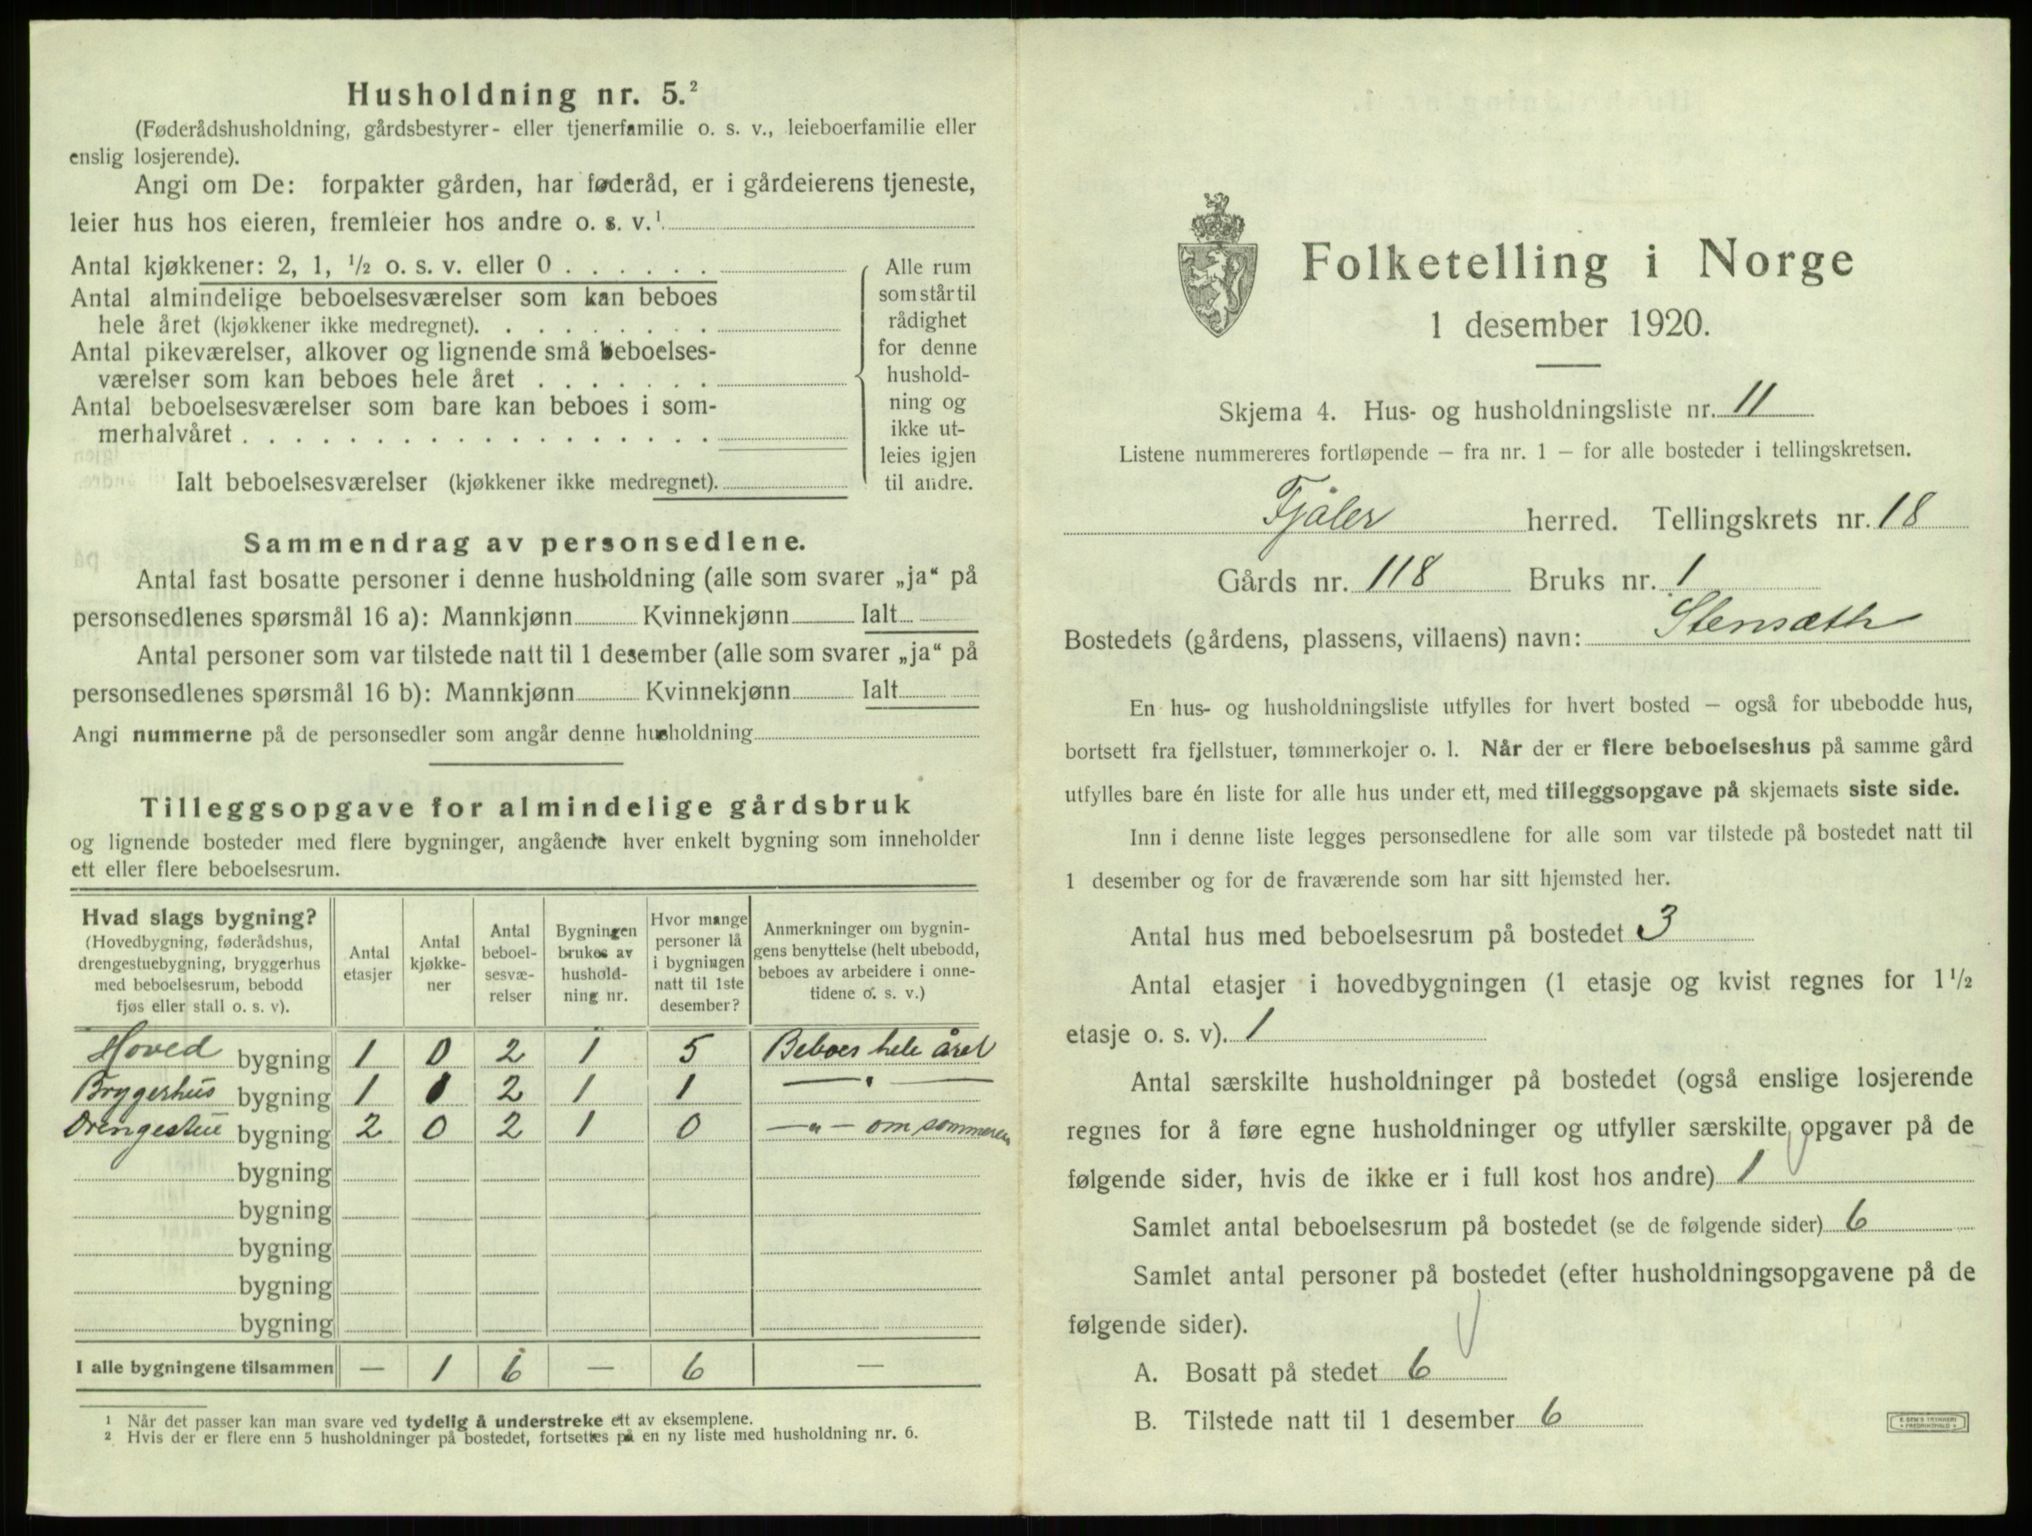 Husholdning nr. 5.²
(Føderådshusholdning, gårdsbestyrer- eller tjenerfamilie o. s. v., leieboerfamilie eller
enslig losjerende).
Angi om De: forpakter gården, har føderåd, er i gårdeierens tjeneste,
leier hus hos eieren, fremleier hos andre o. s. v.¹
Antal kjøkkener: 2, 1, ½ o. s. v. eller 0
Antal almindelige beboelsesværelser som kan beboes
hele året (kjøkkener ikke medregnet).
Antal pikeværelser, alkover og lignende små beboelses-
værelser som kan beboes hele året
Antal beboelsesværelser som bare kan beboes i som-
merhalvåret
Ialt beboelsesværelser (kjøkkener ikke medregnet).
Alle rum
som står til
rådighet
for denne
hushold-
ning og
ikke ut-
leies igjen
til andre.
Sammendrag av personsedlene.
Antal fast bosatte personer i denne husholdning (alle som svarer „ja“ på
personsedlenes spørsmål 16 a): Mannkjønn Kvinnekjønn Ialt
Antal personer som var tilstede natt til 1 desember (alle som svarer „ja“ på
personsedlenes spørsmål 16 b): Mannkjønn Kvinnekjønn Ialt
Angi nummerne på de personsedler som angår denne husholdning
Tilleggsopgave for almindelige gårdsbruk
og lignende bosteder med flere bygninger, angående hver enkelt bygning som inneholder
ett eller flere beboelsesrum.
Hvad slags bygning?
(Hovedbygning, føderådshus,
drengestuebygning, bryggerhus
med beboelsesrum, bebodd
fjøs eller stall o. s. v).
Antal
etasjer
Antal
kjøkke-
ner
Antal
beboel-
sesvæ-
relser
Bygningen
brukes av
hushold-
ning nr.
Hvor mange
personer lå
i bygningen
natt til 1ste
desember?
Anmerkninger om bygnin-
gens benyttelse (helt ubebodd,
beboes av arbeidere i onne-
tidene o. s. v.)
Hoved bygning 1 0 2 1 5 Beboes hele året
Bryggerhus bygning 1 1 2 1 1 — " —
Drengestue bygning 2 0 2 1 0 — " — om sommeren
bygning
bygning
bygning
bygning
bygning
I alle bygningene tilsammen — 1 6 — 6 —
¹ Når det passer kan man svare ved tydelig å understreke ett av eksemplene.
² Hvis der er flere enn 5 husholdninger på bostedet, fortsettes på en ny liste med husholdning nr. 6.
Folketelling i Norge
1 desember 1920.
Skjema 4. Hus- og husholdningsliste nr. 11
Listene nummereres fortløpende — fra nr. 1 — for alle bosteder i tellingskretsen.
Fjaler herred. Tellingskrets nr. 18
Gårds nr. 118 Bruks nr. 1
Bostedets (gårdens, plassens, villaens) navn: Stensæth
En hus- og husholdningsliste utfylles for hvert bosted — også for ubebodde hus,
bortsett fra fjellstuer, tømmerkojer o. l. Når der er flere beboelseshus på samme gård
utfylles bare én liste for alle hus under ett, med tilleggsopgave på skjemaets siste side.
Inn i denne liste legges personsedlene for alle som var tilstede på bostedet natt til
1 desember og for de fraværende som har sitt hjemsted her.
Antal hus med beboelsesrum på bostedet 3
Antal etasjer i hovedbygningen (1 etasje og kvist regnes for 1½
etasje o. s. v). 1
Antal særskilte husholdninger på bostedet (også enslige losjerende
regnes for å føre egne husholdninger og utfyller særskilte opgaver på de
følgende sider, hvis de ikke er i full kost hos andre) 1
Samlet antal beboelsesrum på bostedet (se de følgende sider) 6
Samlet antal personer på bostedet (efter husholdningsopgavene på de
følgende sider).
A. Bosatt på stedet 6
B. Tilstede natt til 1 desember 6